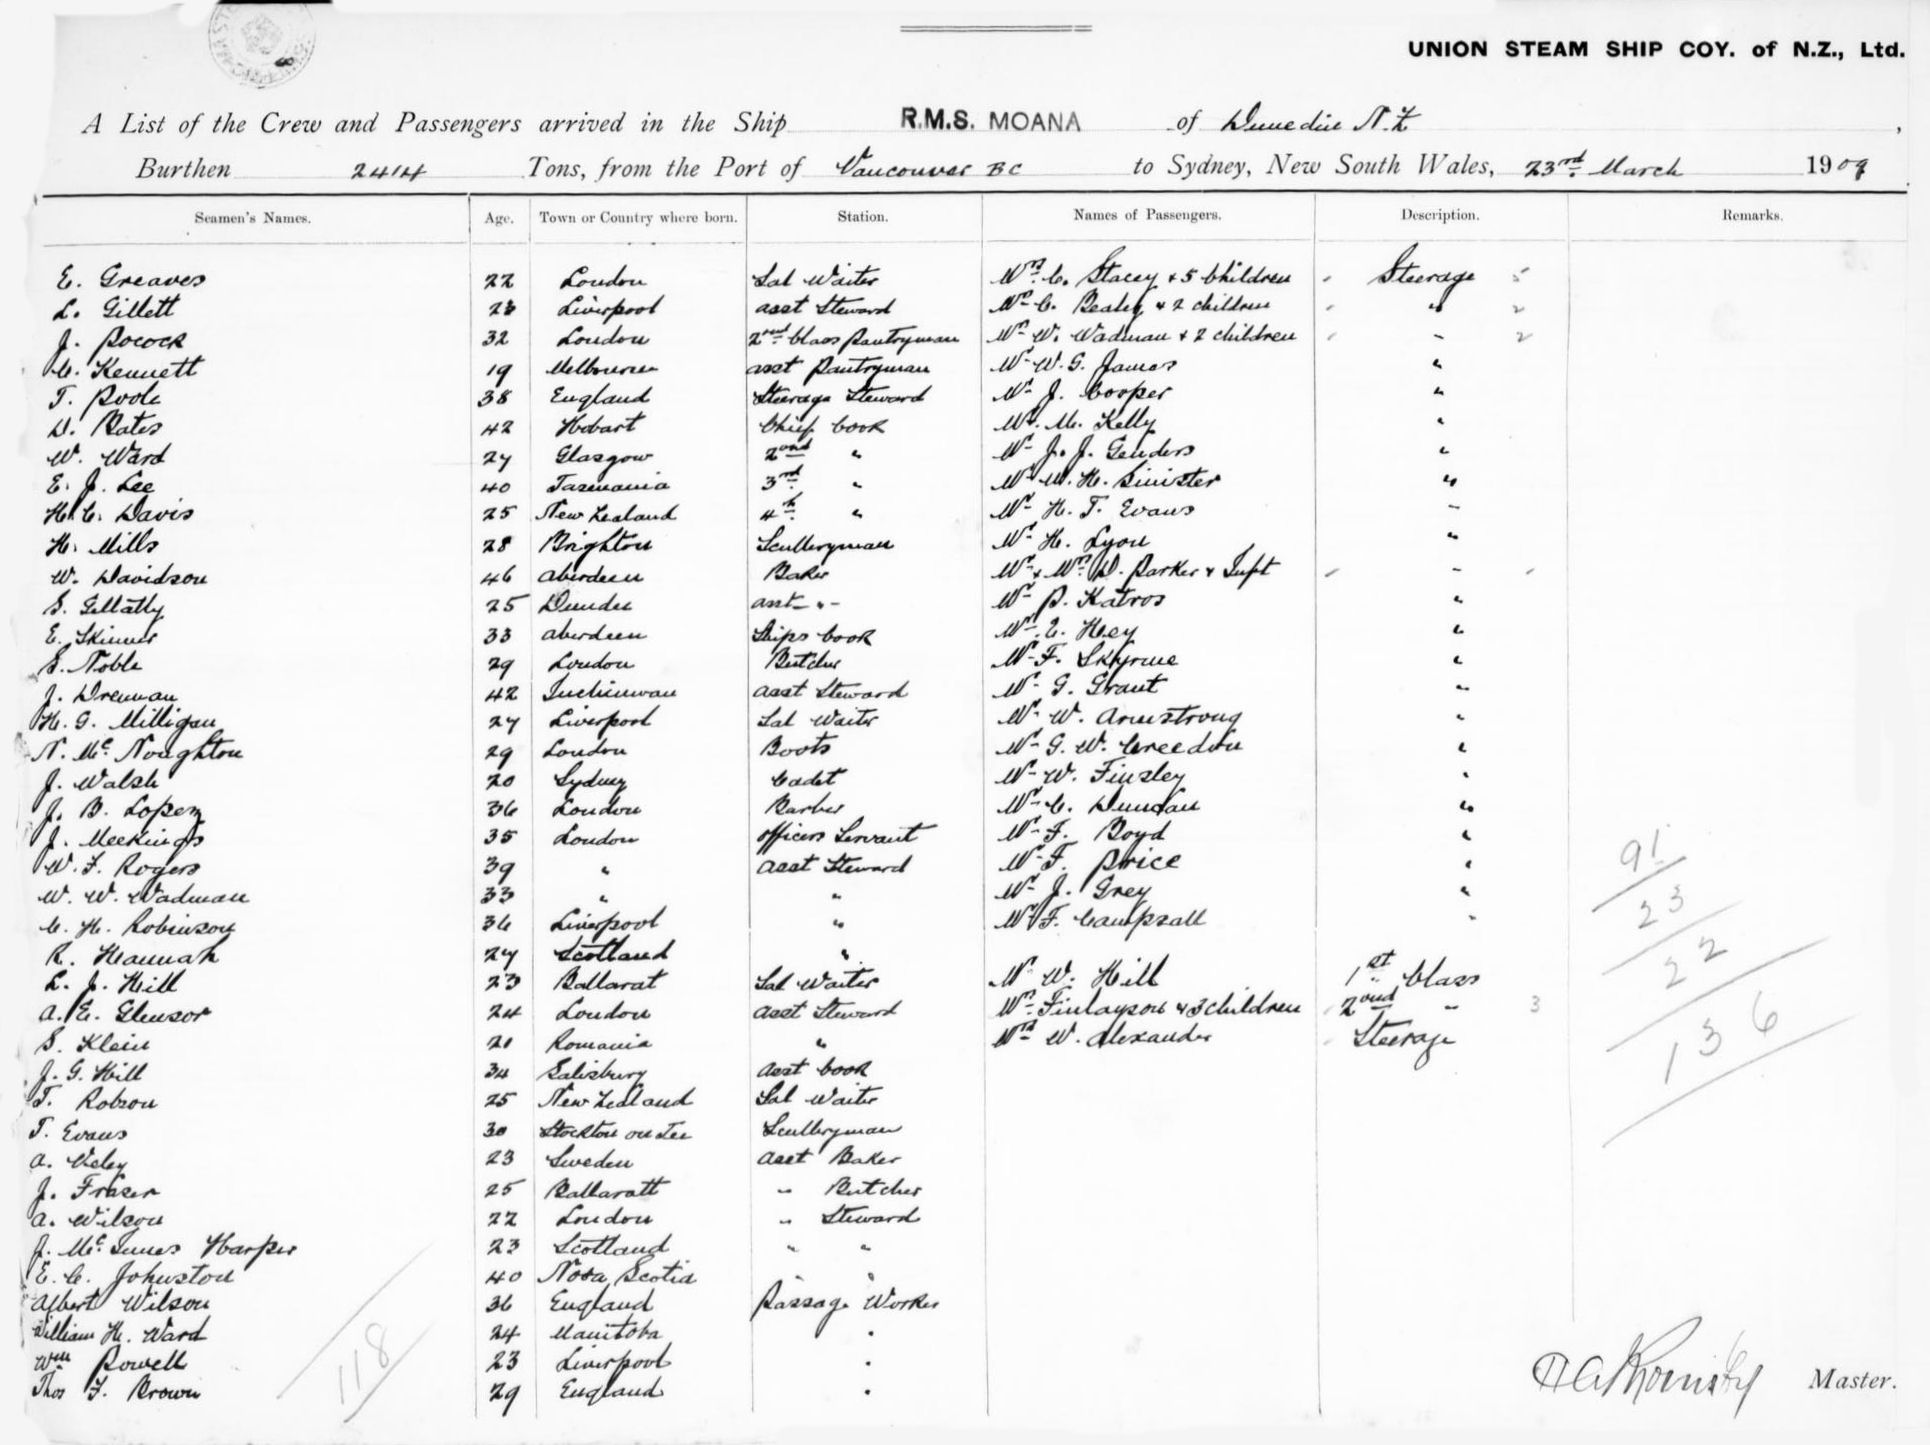 UNION STEAM SHIP COY. of N.Z., Ltd.
A List of the Crew and Passengers arrived in the Ship R.M.S. MOANA of Dunedin N.Z,
Burthen 2414 Tons, from the Port of Vancouver BC to Sydney, New South Wales, 23rd March 1909
Seamen's Names. Age. Town or Country where born. Station. Names of Passengers. Description. Remarks.
E. Greaves 22 London Sal Waiter Mrs C. Stacey + 5 Children Steerage 5
L. Gillett 23 Liverpool asst Steward C. Bealey + 2 children " 2
J. Pocock 32 London 2nd Class Pantryman W. Wadman + 2 children " 2
C. Kennett 19 Melbourne asst Pantryman Mr W. G. James "
T. Poole 38 England Steerage Steward Mr J. Cooper "
D. Bates 42 Hobart Chief Cook Mr. M. Kelly "
W. Ward 27 Glasgow 2nd " Mr J. J. Genders "
E. J. Lee 40 Tasmania 3rd " Mr W. H. Sinister "
H. C. Davis 25 New Zealand 4th " Mr H. T. Evans "
H. Mills 28 Brighton Sculleryman Mr H. Lyon "
W. Davidson 46 Aberdeen Baker Mr + Mrs D. Parker + Inft "
S. Gellatly 25 Dundee asst " Mr P. Katros "
E. Skinner 33 Aberdeen Ships Cook E. Hey "
E. Noble 29 London Butcher Mr F. Skyrme "
J. Drennan 42 asst Steward Mr G. Grant "
H. G. Milligan 27 Liverpool Sal Waiter Mr W. Armstrong "
N. Mc Noughton 29 London Boots Mr G. W. Creedon "
J. Walsh 20 Sydney Cadet Mr W. Finsley "
J. B. Lopez 36 London Barber Mr C. Duncan "
J. Meekings 35 London Officers Servant Mr F. Boyd "
W. F. Rogers 39 " asst Steward Mr F. Price "
W. W. Wadman 33 " " Mr J. Grey "
C. H. Robinson 36 Liverpool " Mr F. Campsall "
R. Hannah 27 Scotland "
L. J. Hill 23 Ballarat Sal Waiter Mr W. Hill 1st Class
A. E. Glensor 24 London asst Steward Mrs Finlayson + 3 children 2nd " 3
S. Klein 21 Romania " W. Alexander Steerage
J. G. Hill 34 Salisbury asst Cook
T. Robson 25 New Zealand Sal Waiter
T. Evans 30 Stockton on Tee Sculleryman
A. 23 Sweden asst Baker
J. Fraser 25 Ballaratt " Butcher
A. Wilson 22 London " Steward
J. Mc Innes Harper 23 Scotland " "
E. C. Johnston 40 Nova Scotia " "
Albert Wilson 36 England Passage Worker
William H. Ward 24 Manitoba "
Wm Powell 23 Liverpool "
Thos F. Brown 29 England "
91
23
22
136
118
Master.